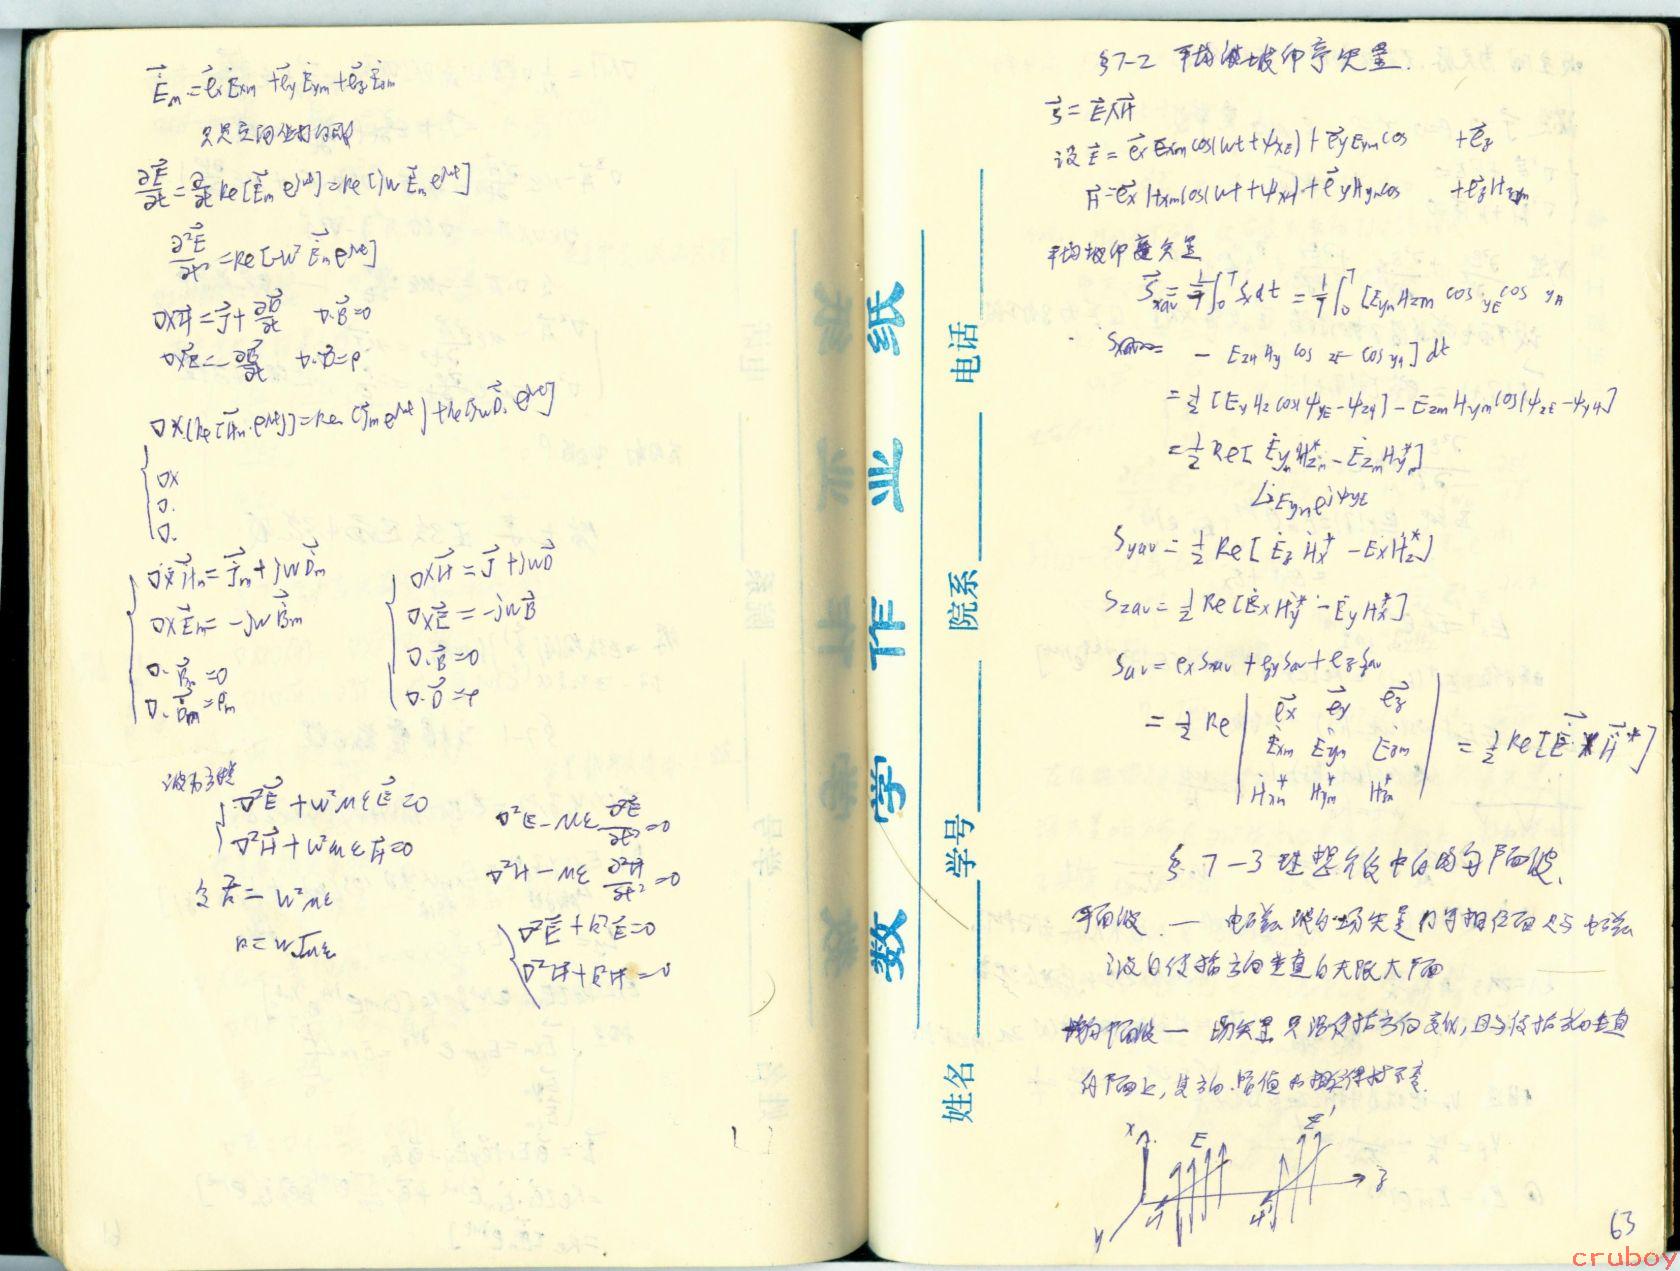 Ėm = exĖxm + eyĖym + ezĖzm
只是空间坐标的函
∂E/∂t = ∂/∂t Re[Ėm e^jwt] = Re[jw Ėm e^jwt]
∂²E/∂t² = Re[-w² Ėm e^jwt]
∇×H = J + ∂D/∂t  ∇·B=0
∇×E = -∂B/∂t  ∇·D=ρ
∇×(Re[Ḣm·e^jwt]) = Re[J̇m e^jwt] + Re[jwḊ· e^jwt]
∇×
∇·
∇·
∇×Ḣm = J̇m + jwḊm
∇×Ėm = -jwḂm
∇·Ḃm=0
∇·Ḋm=ρm
∇×H = J + jwD
∇×E = -jwB
∇·B=0
∇·D=ρ
波动方程
∇²E + w²μεE=0
∇²H + w²μεH=0
∇²E - με ∂²E/∂t² =0
∇²H - με ∂²H/∂t² =0
令 k² = w²με
k = w√με
∇²E + k²E=0
∇²H + k²H=0
数学作业纸
姓名 学号 院系 电话
§7-2 平均坡印亭矢量.
S = E×H
设 E = ex Exm cos(wt+ψxE) + ey Eym cos  + ez
H = ex Hxm cos(wt+ψxH) + ey Hym cos  + ez Hzm
平均坡印亭矢量
Sxav = 1/T ∫₀ᵀ Sx dt = 1/T ∫₀ᵀ [Eym Hzm cos yE cos yH
- Ezm Hy cos zE cos yH] dt
= ½ [Ey Hz cos(ψyE-ψzH) - Ezm Hym cos(ψzE-ψyH)]
= ½ Re[Ėym Ḣzm* - Ėzm Ḣym*]
Eym e^jψyE
Syav = ½ Re[Ėz Ḣx* - Ėx Ḣz*]
Szav = ½ Re[Ėx Hy* - Ėy Hx*]
Sav = ex Sxav + ey Sav + ez Sav
= ½ Re | ex ey ez
Ėxm Ėym Ėzm
Ḣxm* Ḣym* Ḣzm* | = ½ Re[Ė × Ḣ*]
§.7-3 理想介质中的均匀平面波.
平面波. — 电磁波的场矢量的等相位面是与电磁
波的传播方向垂直的无限大平面
均匀平面波 — 场矢量只沿传播方向变化, 且与传播方向垂直
的平面上, 其方向.幅值和相位保持不变.
x E E' z
y H H
63
cruboy